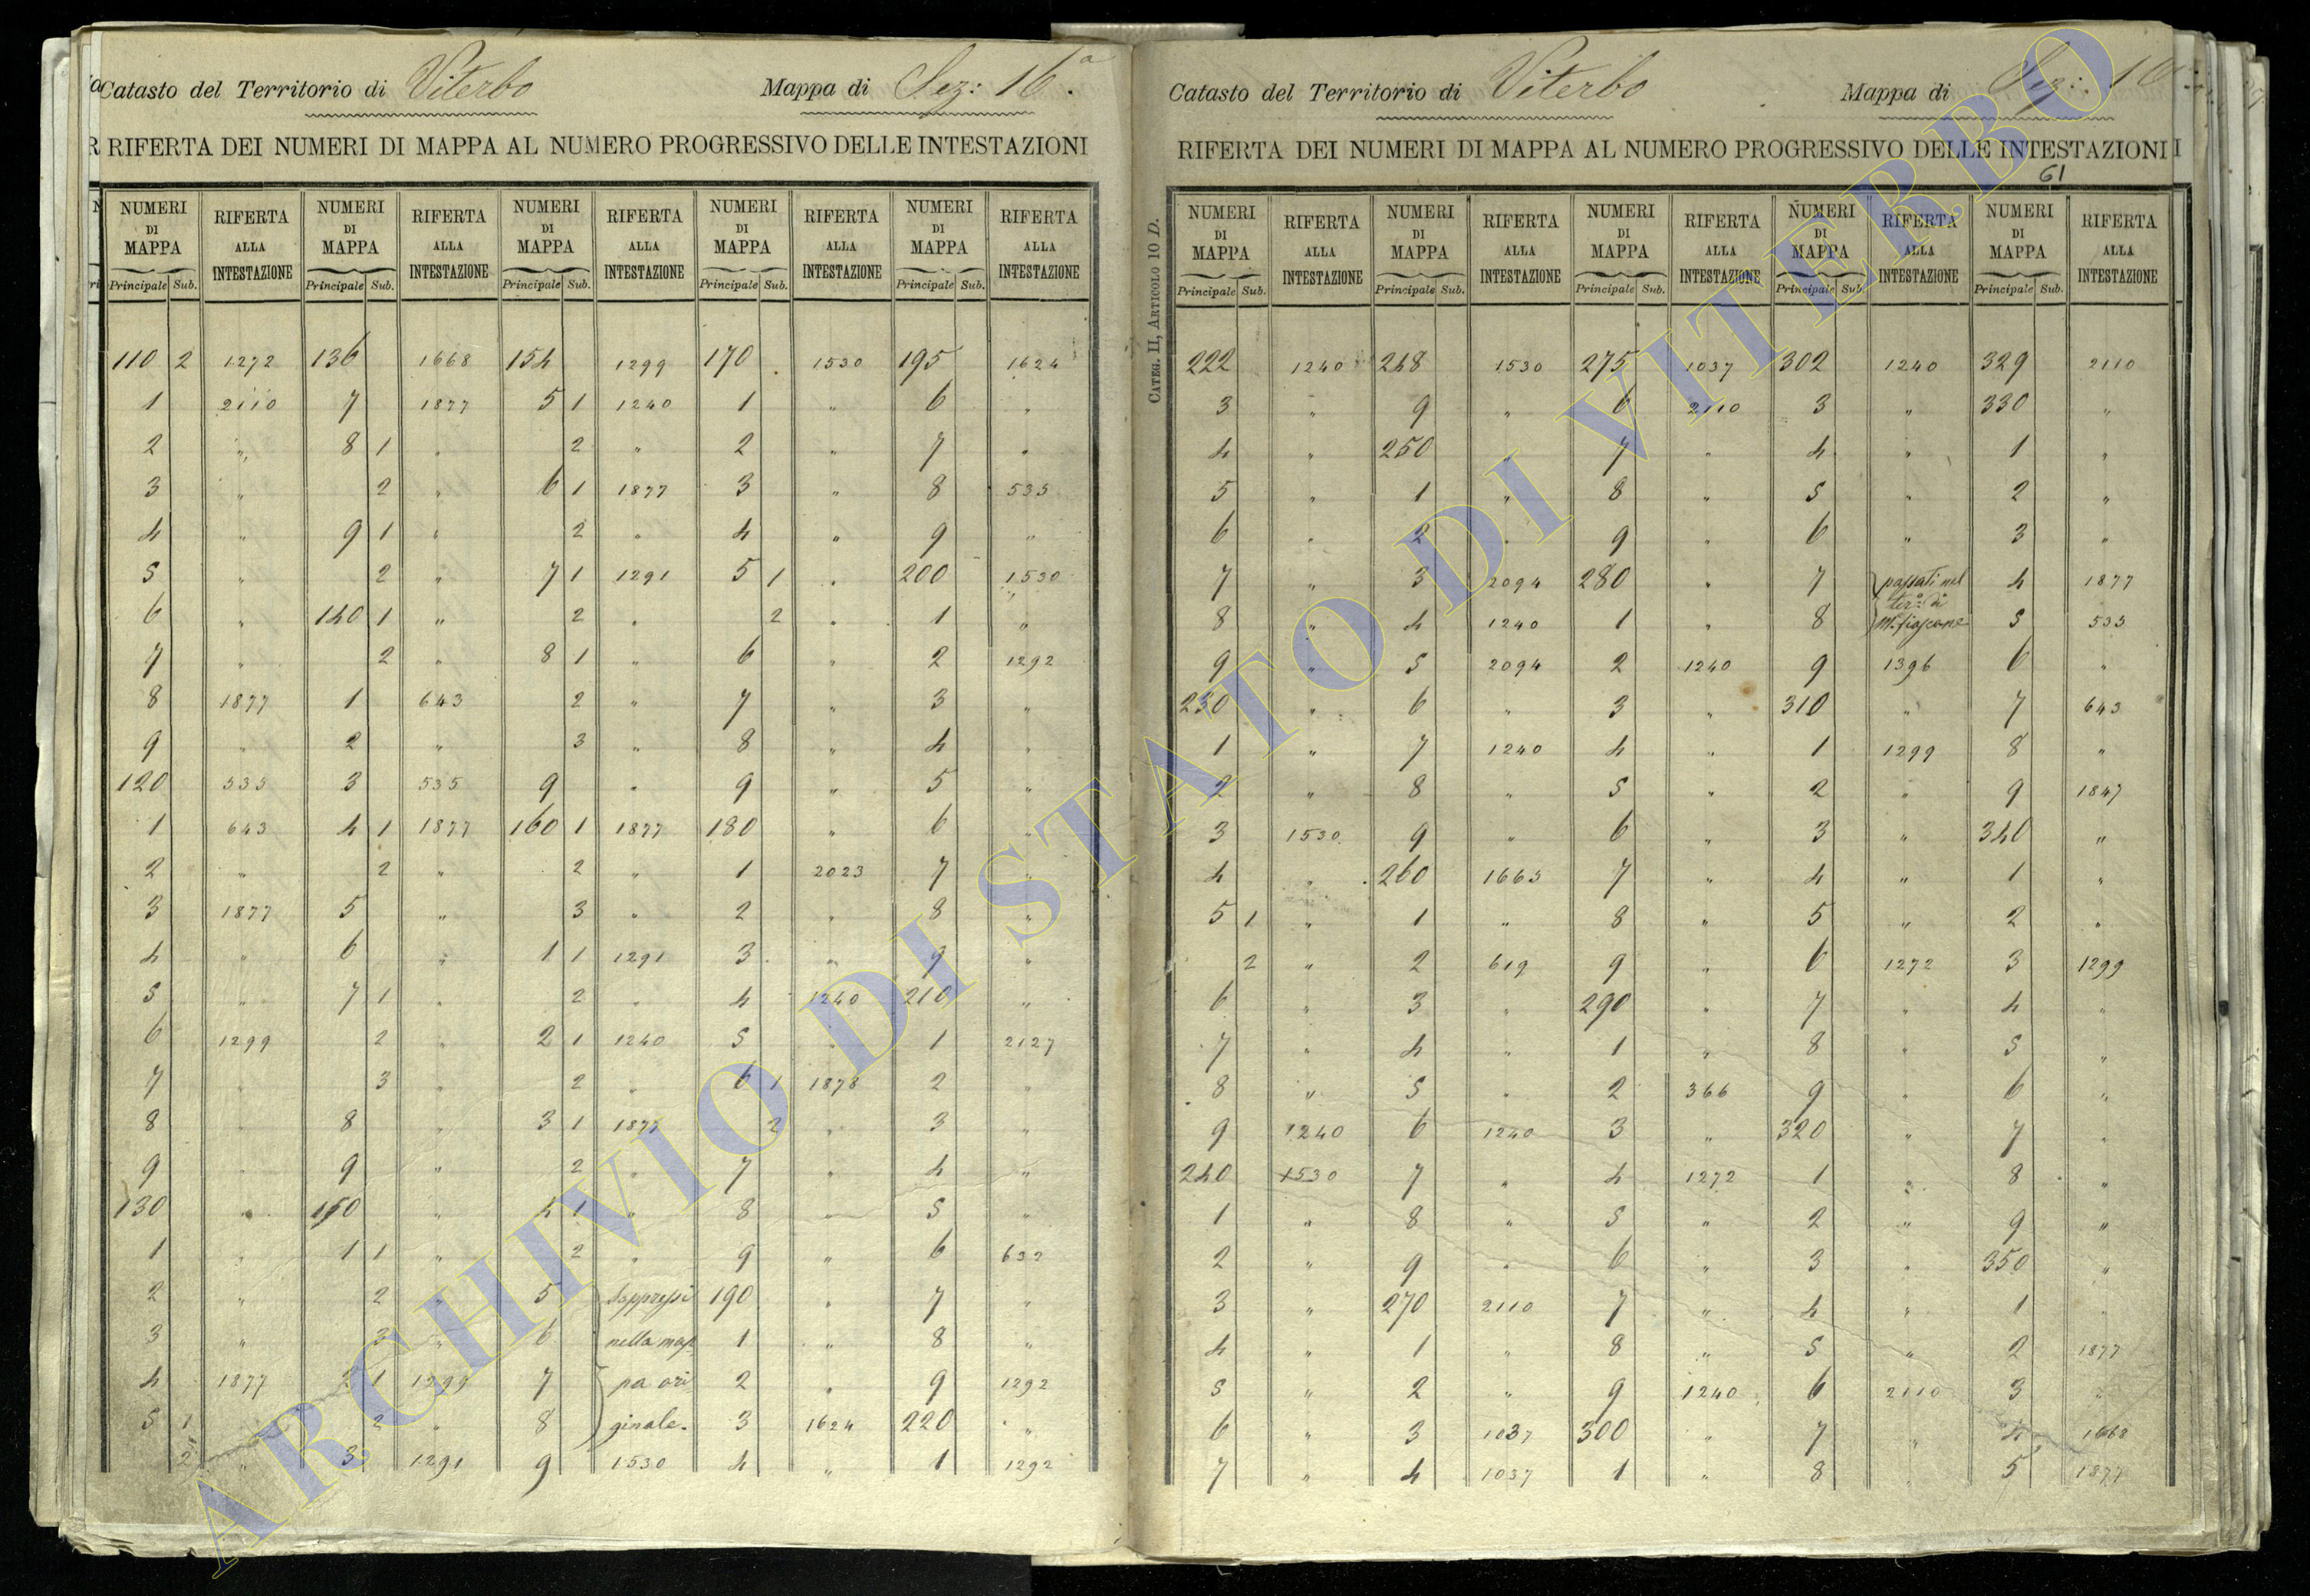 Catasto del Territorio di Viterbo Mappa di Sez: 16ª.
RIFERTA DEI NUMERI DI MAPPA AL NUMERO PROGRESSIVO DELLE INTESTAZIONI
NUMERI DI MAPPA RIFERTA ALLA INTESTAZIONE NUMERI DI MAPPA RIFERTA ALLA INTESTAZIONE NUMERI DI MAPPA RIFERTA ALLA INTESTAZIONE NUMERI DI MAPPA RIFERTA ALLA INTESTAZIONE NUMERI DI MAPPA RIFERTA ALLA INTESTAZIONE
Principale Sub. Principale Sub. Principale Sub. Principale Sub. Principale Sub.
110 2 1272 136 1668 154 1299 170 1530 195 1624
1 2110 7 1877 5 1 1240 1 " 6 "
2 " 8 1 " 2 " 2 " 7 "
3 " 2 " 6 1 1877 3 " 8 535
4 " 9 1 " 2 " 4 " 9 "
5 " 2 " 7 1 1291 5 1 " 200 1530
6 " 140 1 " 2 " 2 " 1 "
7 " 2 " 8 1 " 6 " 2 1292
8 1877 1 643 2 " 7 " 3 "
9 " 2 " 3 " 8 " 4 "
120 535 3 535 9 " 9 " 5 "
1 643 4 1 1877 160 1 1877 180 " 6 "
2 " 2 " 2 " 1 2023 7 "
3 1877 5 " 3 " 2 " 8 "
4 " 6 " 1 1 1291 3 " 9 "
5 " 7 1 " 2 " 4 1240 210 "
6 1299 2 " 2 1 1240 5 " 1 2127
7 " 3 " 2 " 6 1 1878 2 "
8 " 8 " 3 1 1877 2 " 3 "
9 " 9 " 2 " 7 " 4 "
130 " 150 " 4 1 " 8 " 5 "
1 " 1 1 " 2 " 9 " 6 632
2 " 2 " 5 Soppressi 190 " 7 "
3 " 3 " 6 nella map 1 " 8 "
4 1877 2 1 1299 7 pa ori 2 " 9 1292
5 1 " 2 " 8 ginale. 3 1624 220 "
2 " 3 1291 9 1530 4 " 1 1292
Catasto del Territorio di Viterbo Mappa di Sez: 16
RIFERTA DEI NUMERI DI MAPPA AL NUMERO PROGRESSIVO DELLE INTESTAZIONI
61
CATEG. II, ARTICOLO 10 D.
NUMERI DI MAPPA RIFERTA ALLA INTESTAZIONE NUMERI DI MAPPA RIFERTA ALLA INTESTAZIONE NUMERI DI MAPPA RIFERTA ALLA INTESTAZIONE NUMERI DI MAPPA RIFERTA ALLA INTESTAZIONE NUMERI DI MAPPA RIFERTA ALLA INTESTAZIONE
Principale Sub. Principale Sub. Principale Sub. Principale Sub. Principale Sub.
222 1240 248 1530 275 1037 302 1240 329 2110
3 " 9 " 6 2110 3 " 330 "
4 " 250 " 7 " 4 " 1 "
5 " 1 " 8 " 5 " 2 "
6 " 2 " 9 " 6 " 3 "
7 " 3 2094 280 " 7 passati nel 4 1877
8 " 4 1240 1 " 8 terº di Mte fiascone 5 535
9 " 5 2094 2 1240 9 1396 6 "
230 " 6 " 3 " 310 " 7 643
1 " 7 1240 4 " 1 1299 8 "
2 " 8 " 5 " 2 " 9 1847
3 1530 9 " 6 " 3 " 340 "
4 " 260 1663 7 " 4 " 1 "
5 1 " 1 " 8 " 5 " 2 "
2 " 2 619 9 " 6 1272 3 1299
6 " 3 " 290 " 7 " 4 "
7 " 4 " 1 " 8 " 5 "
8 " 5 " 2 366 9 " 6 "
9 1240 6 1240 3 " 320 " 7 "
240 1530 7 " 4 1272 1 " 8 "
1 " 8 " 5 " 2 " 9 "
2 " 9 " 6 " 3 " 350 "
3 " 270 2110 7 " 4 " 1 "
4 " 1 " 8 " 5 " 2 1877
5 " 2 " 9 1240 6 2110 3 "
6 " 3 1037 300 " 7 " 4 1668
7 " 4 1037 1 " 8 " 5 1877
ARCHIVIO DI STATO DI VITERBO